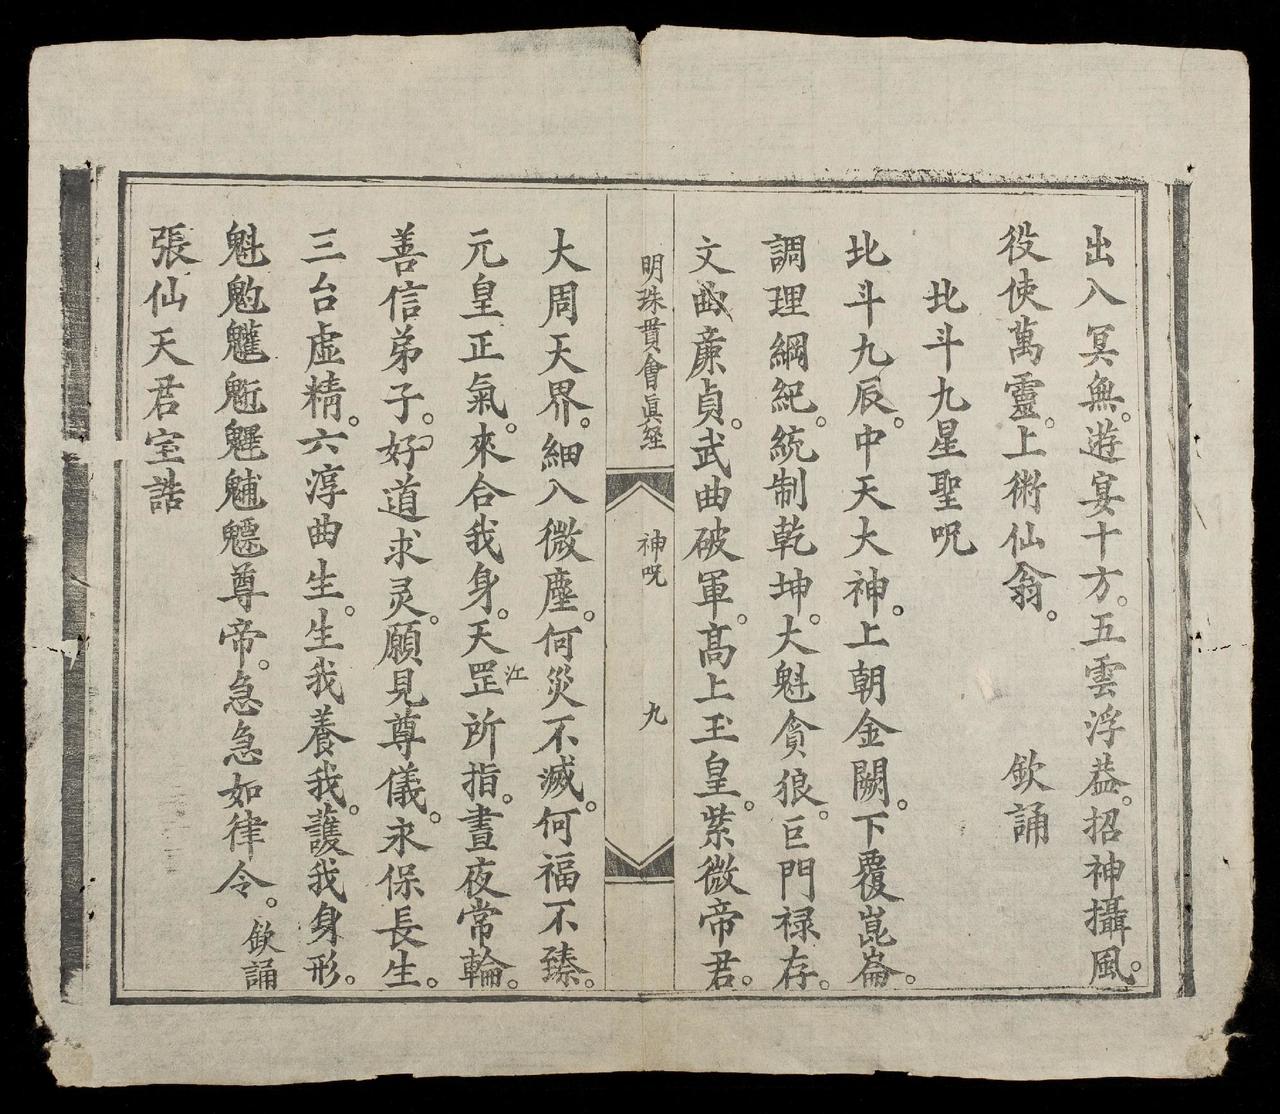 出入冥無。遊宴十方。五雲浮葢。招神攝風。
役使萬靈。上術仙翁。　欽誦
北斗九星聖呪
北斗九辰。中天大神。上朝金闕。下覆崑崙。
調理綱紀。統制乾坤。大魁貪狼。巨門禄存。
文曲廉貞。武曲破軍。高上玉皇。紫微帝君。
明珠貫會眞経
神呪
九
大周天界。細入微塵。何災不滅。何福不臻。
元皇正氣。來合我身。天罡所指。晝夜常輪。
江
善信弟子。好道求灵。願見尊儀。永保長生。
三台虛精。六淳曲生。生我養我。護我身形。
魁䰢䰟魓𩲃䰥魒尊帝。急急如律令。欽誦
張仙天君宝誥